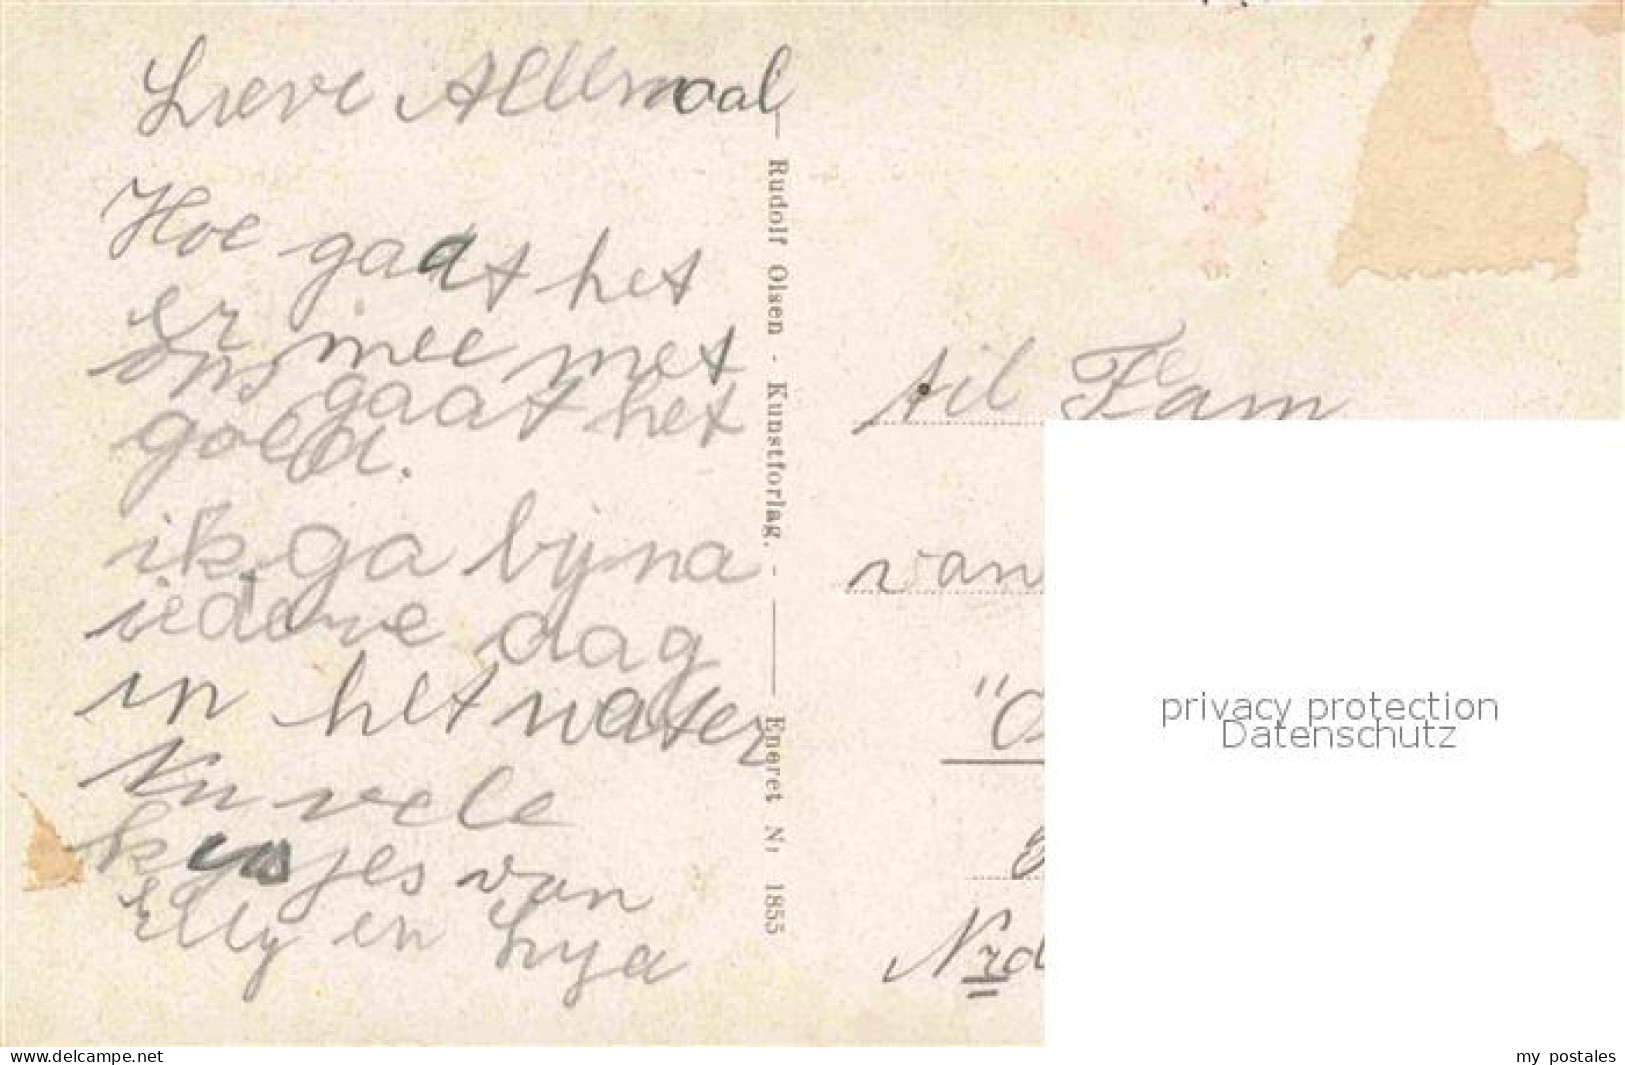 Lieve Allemaal
Hoe gaat het
er mee met
ons gaat het
goed.
ik ga bijna
iedere dag
in het water
Nu vele
kusjes van
Elly en Lya
Rudolf Olsen - Kunstforlag. - Eneret Nr 1855
til Fam
van
"O
Nrd
privacy protection
Datenschutz
www.delcampe.net
my_postales